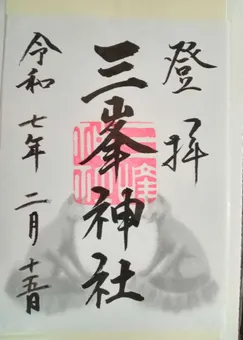 登拝
三峯神社
令和七年二月十五日